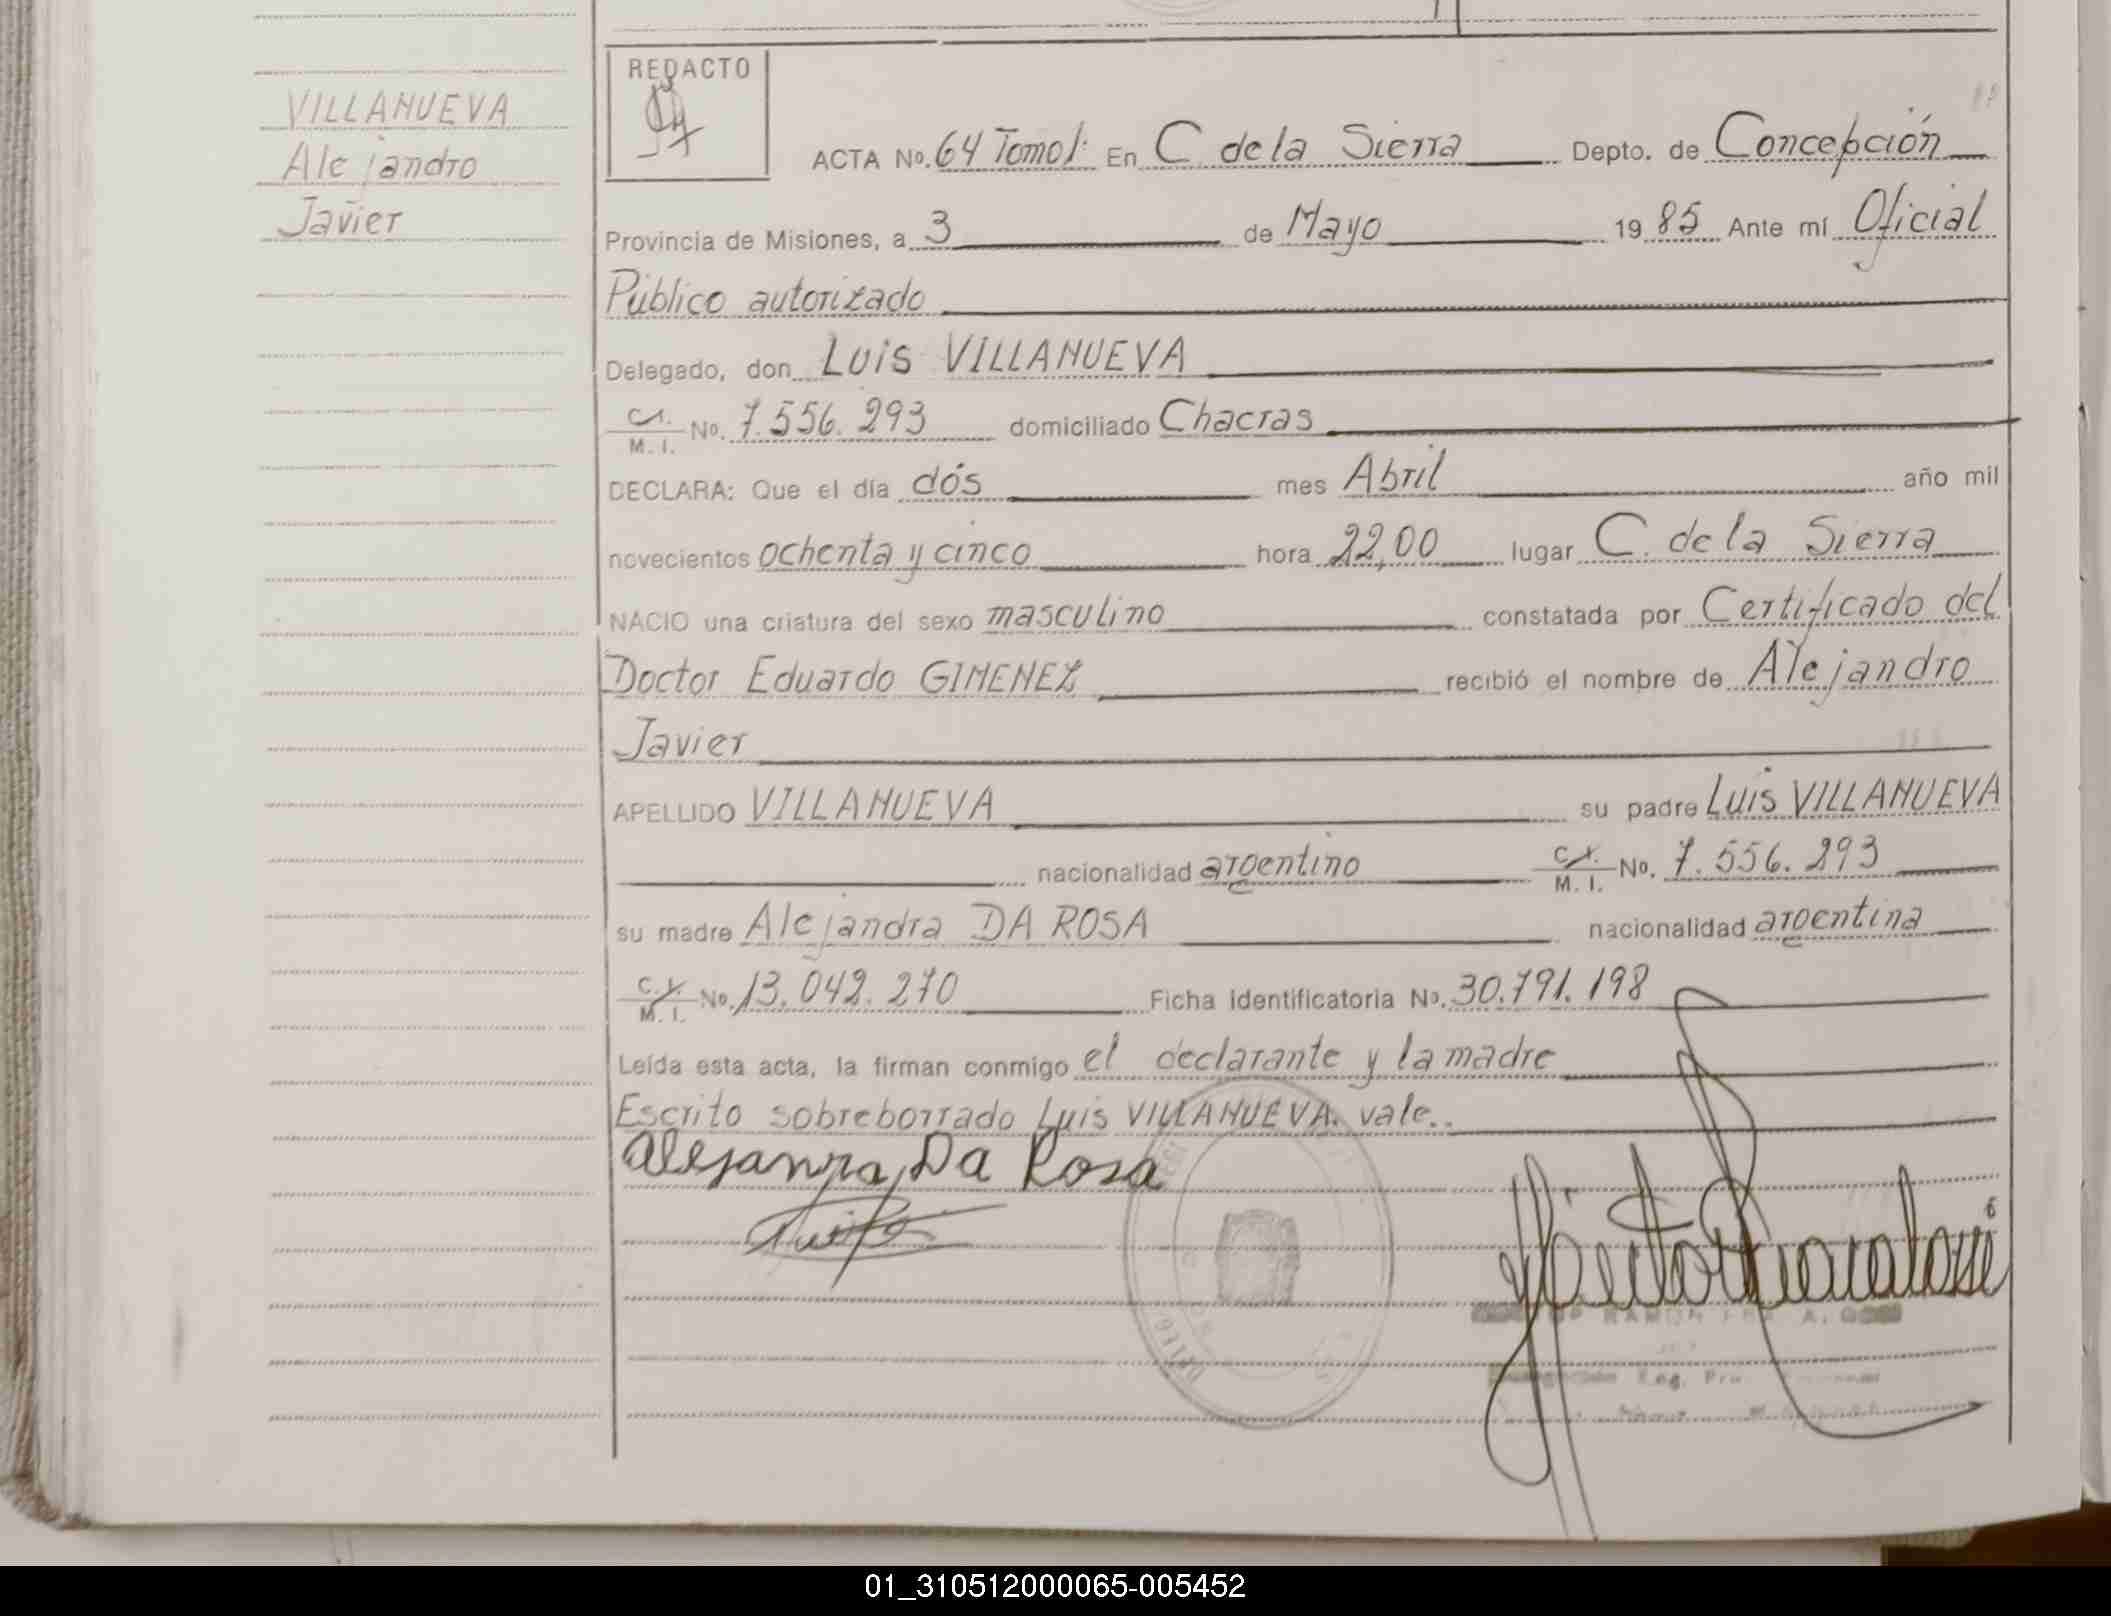 VILLANUEVA
Alejandro
Javier
REDACTO
ACTA No. 64 Tomo I. En C de la Sierra Depto. de Concepción
Provincia de Misiones, a 3 de Mayo 19 85 Ante mí Oficial
Público autorizado
Delegado, don Luis VILLANUEVA
C.I. M. I. No. 7.556.293 domiciliado Chacras
DECLARA: Que el día dós mes Abril año mil
novecientos ochenta y cinco hora 22,00 lugar C. de la Sierra
NACIO una criatura del sexo masculino constatada por Certificado del
Doctor Eduardo GIMENEZ recibió el nombre de Alejandro
Javier
APELLIDO VILLANUEVA su padre Luis VILLANUEVA
nacionalidad argentino C.I. M. I. No. 7.556.293
su madre Alejandra DA ROSA nacionalidad argentina
C.I. M. I. No. 13.042.270 Ficha identificatoria No. 30.791.198
Leída esta acta, la firman conmigo el declarante y la madre
Escrito sobreborrado Luis VILLANUEVA. vale..
Alejandra Da Rosa
01_310512000065-005452